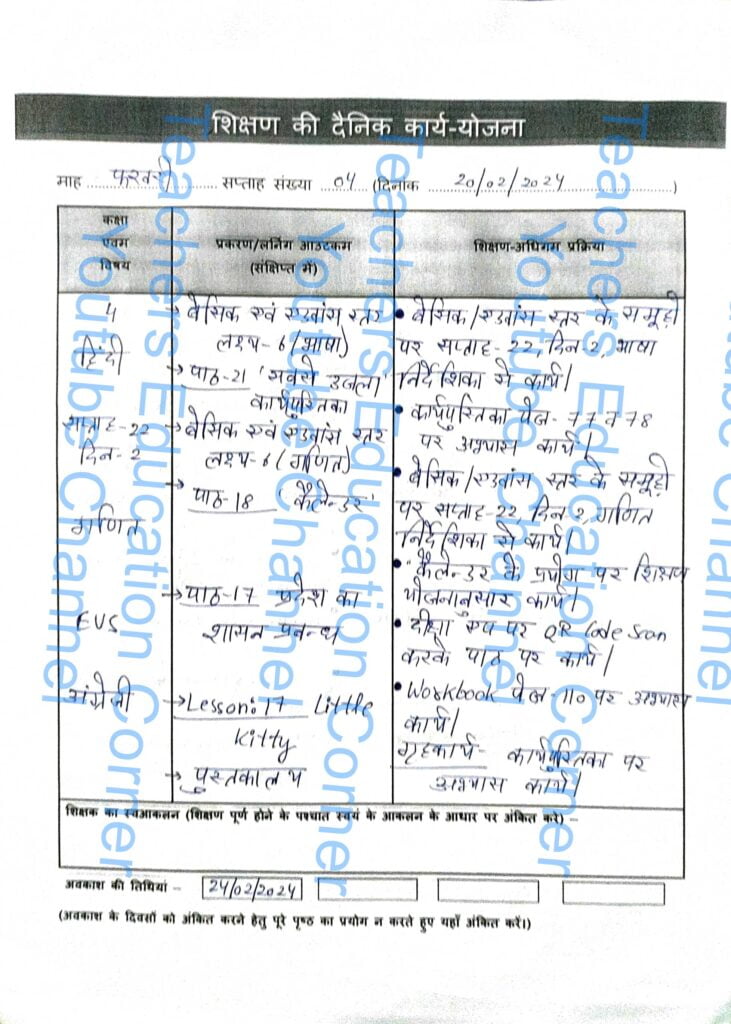 शिक्षण की दैनिक कार्य-योजना
माह फरवरी सप्ताह संख्या 04 (दिनांक 20/02/2024)
कक्षा
एवम
विषय
प्रकरण/लर्निंग आउटकम
(संक्षिप्त में)
शिक्षण-अधिगम प्रक्रिया
4
हिंदी
सप्ताह-22
दिन-2
गणित
EVS
अंग्रेजी
→ बेसिक एवं एडवांस स्तर
लक्ष्य-6 (भाषा)
→ पाठ-21 'सबसे उजला'
कार्यपुस्तिका
→ बेसिक एवं एडवांस स्तर
लक्ष्य-6 (गणित)
→ पाठ-18 'कैलेन्डर'
→ पाठ-17 प्रदेश का
शासन प्रबन्ध
→ Lesson:17 Little
Kitty
→ पुस्तकालय
• बेसिक/एडवांस स्तर के समूहों
पर सप्ताह-22, दिन-2, भाषा
निर्देशिका से कार्य।
• कार्यपुस्तिका पेज-77 व 78
पर अभ्यास कार्य।
• बेसिक/एडवांस स्तर के समूहों
पर सप्ताह-22, दिन 2, गणित
निर्देशिका से कार्य।
• कैलेन्डर के प्रयोग पर शिक्षण
योजनानुसार कार्य।
• दीक्षा एप पर QR Code Scan
करके पाठ पर कार्य।
• Workbook पेज-110 पर अभ्यास
कार्य।
गृहकार्य- कार्यपुस्तिका पर
अभ्यास कार्य।
शिक्षक का स्वआकलन (शिक्षण पूर्ण होने के पश्चात स्वयं के आकलन के आधार पर अंकित करें) –
अवकाश की तिथियां – 24/02/2024
(अवकाश के दिवसों को अंकित करने हेतु पूरे पृष्ठ का प्रयोग न करते हुए यहाँ अंकित करें।)
Teachers Education Corner
Youtube Channel
Teachers Education Corner
Youtube Channel
Teachers Education Corner
Youtube Channel